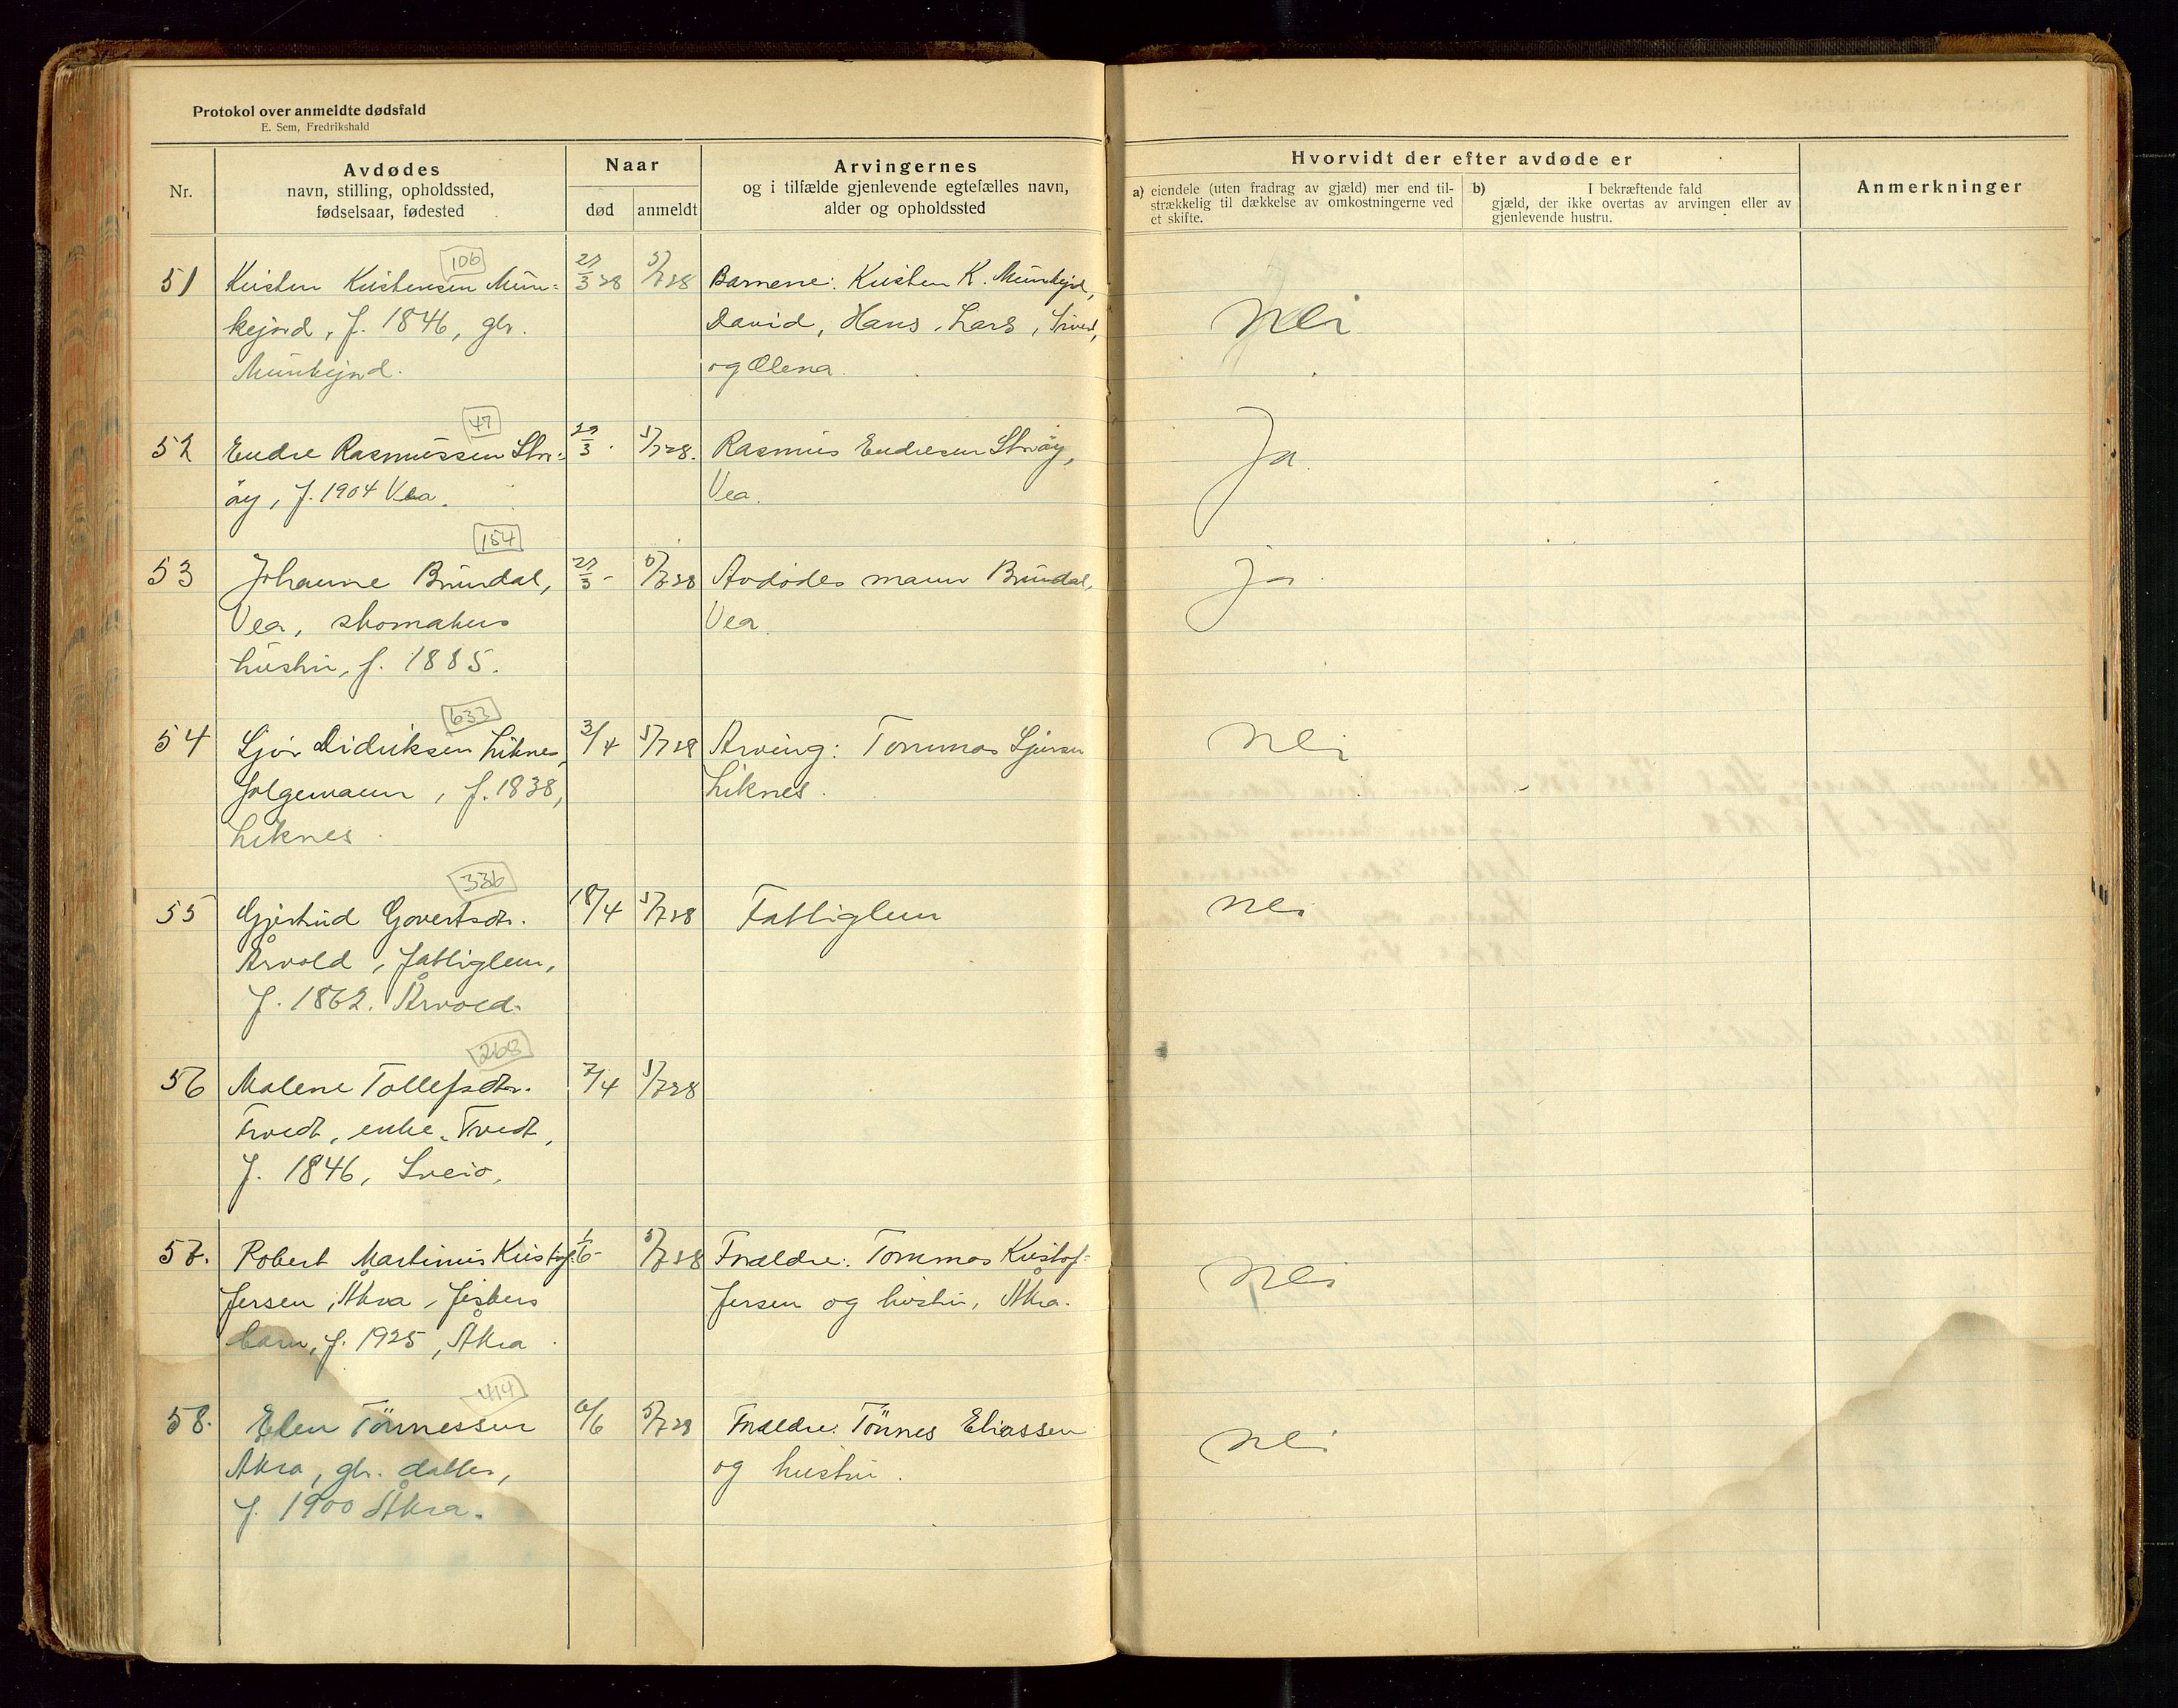 Protokol over anmeldte dødsfald
E. Sem, Fredrikshald
Nr.
Avdødes
navn, stilling, opholdssted,
fødselsaar, fødested
Naar
død
anmeldt
Arvingernes
og i tilfælde gjenlevende egtefælles navn,
alder og opholdssted
Hvorvidt der efter avdøde er
a) eiendele (uten fradrag av gjæld) mer end til-
strækkelig til dækkelse av omkostningerne ved
et skifte.
b) I bekræftende fald
gjæld, der ikke overtas av arvingen eller av
gjenlevende hustru.
Anmerkninger
106
51 Kristen Kristensen Mun- 27/3 28 5/7 28 Barnene: Kristen K. Munkejord, Nei
kejord, f. 1846, gbr. David, Hans, Lars, Sivert,
Munkejord. og Olena.
47
52 Endre Rasmussen Stor- 27/3 5/7 28. Rasmus Endresen Storøy, Ja.
øy, f. 1904 Vea. Vea.
154
53 Johanne Brundal, 27/3 - 5/7 28 Avdødes mann Brundal, ja.
Vea, skomakers Vea
hustru, f. 1885.
633
54 Sjur Didriksen Liknes, 3/4 5/7 28 Arving: Tommas Sjursen Nei
folgemann, f. 1838, Liknes.
Liknes.
336
55 Gjertrud Govertsdtr. 18/4 5/7 28 Fattiglem Nei
Årvold, fattiglem,
f. 1862. Årvold.
268
56 Malene Tollefsdtr. 7/4 5/7 28
Tvedt, enke, Tvedt,
f. 1846, Sveio,
57. Robert Martinus Kristof- 1/6- 5/7 28 Foreldre: Tommas Kristof- Nei
fersen, Åkra, fiskers fersen og hustru, Åkra.
barn, f. 1925, Åkra.
414
58. Elen Tönnessen 6/6 5/7 28 Foreldre: Tönnes Eliassen Nei
Åkra, gbr. datter, og hustru.
f. 1900 Åkra.